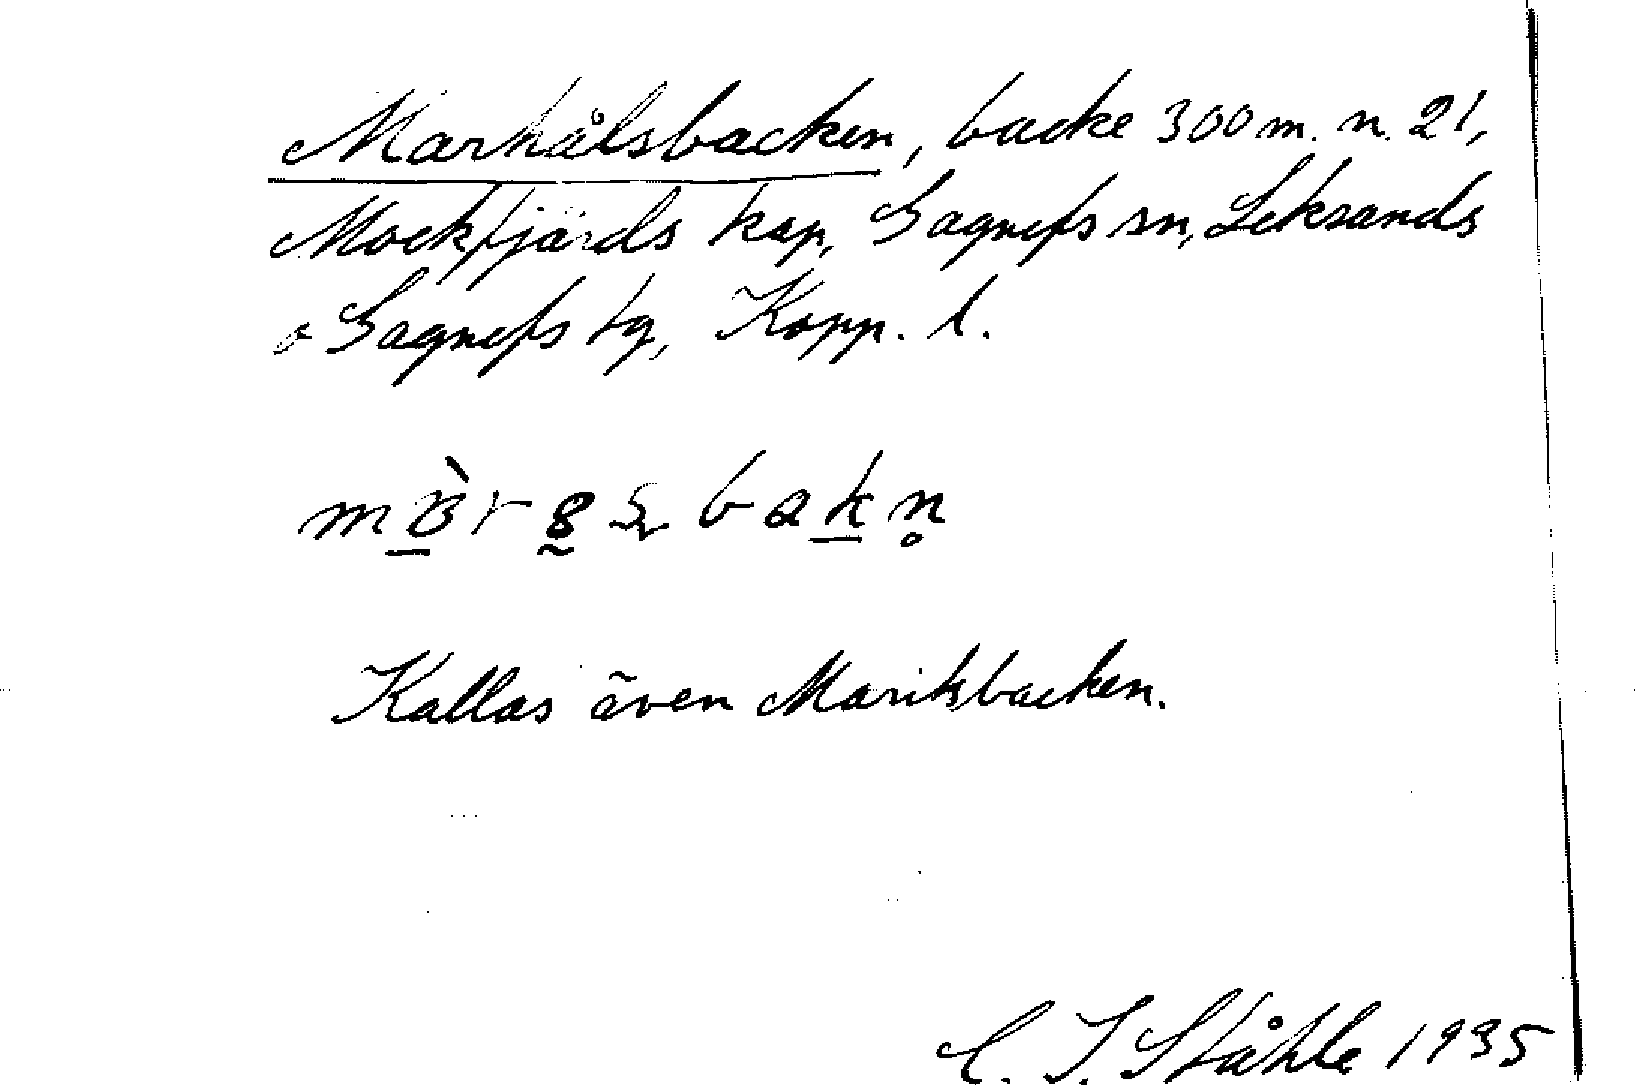 Marhålsbacken, backe 300 m. n. 21,
Mockfjärds kap, Gagnefs sn, Leksands
o Gagnefs tg, Kopp. l.
bakn̥
Kallas även Mariksbacken.
C. I. Ståhle 1935